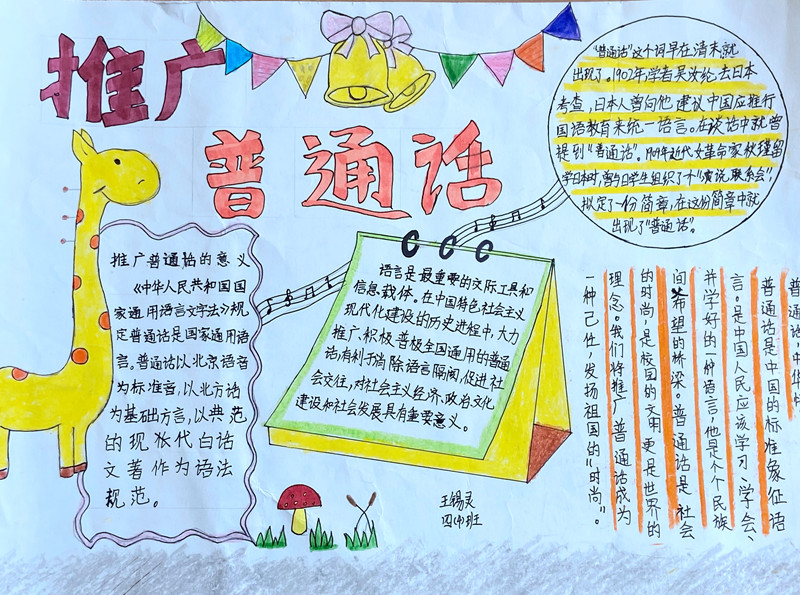 推广
普通话
"普通话"这个词早在清末就
出现了。1902年,学者吴汝纶去日本
考查,日本人曾向他建议中国应推行
国语教育来统一语言。在谈话中就曾
提到"普通话"。1904年近代女革命家秋瑾留
学日本时,曾与留学生组织了一个"演说联系会",
拟定了一份简章,在这份简章中就
出现了"普通话"。
推广普通话的意义
《中华人民共和国国
家通用语言文字法》规
定普通话是国家通用语
言。普通话以北京语音
为标准音,以北方话
为基础方言,以典范
的现代白话
文著作为语法
规范。
语言是最重要的交际工具和
信息载体。在中国特色社会主义
现代化建设的历史进程中,大力
推广、积极普极全国通用的普通
话,有利于消除语言隔阂,促进社
会交往,对社会主义经济、政治文化
建设和社会发展具有重要意义。
普通话,中华
普通话是中国的标准象征语
言。是中国人民应该学习、学会、
并学好的一种语言,他是个个民族
间希望的桥梁。普通话是社会
的时尚,是校园的文明,更是世界的
理念。我们将推广普通话成为
一种己任,发扬祖国的"时尚"。
王锡灵
四(1)班